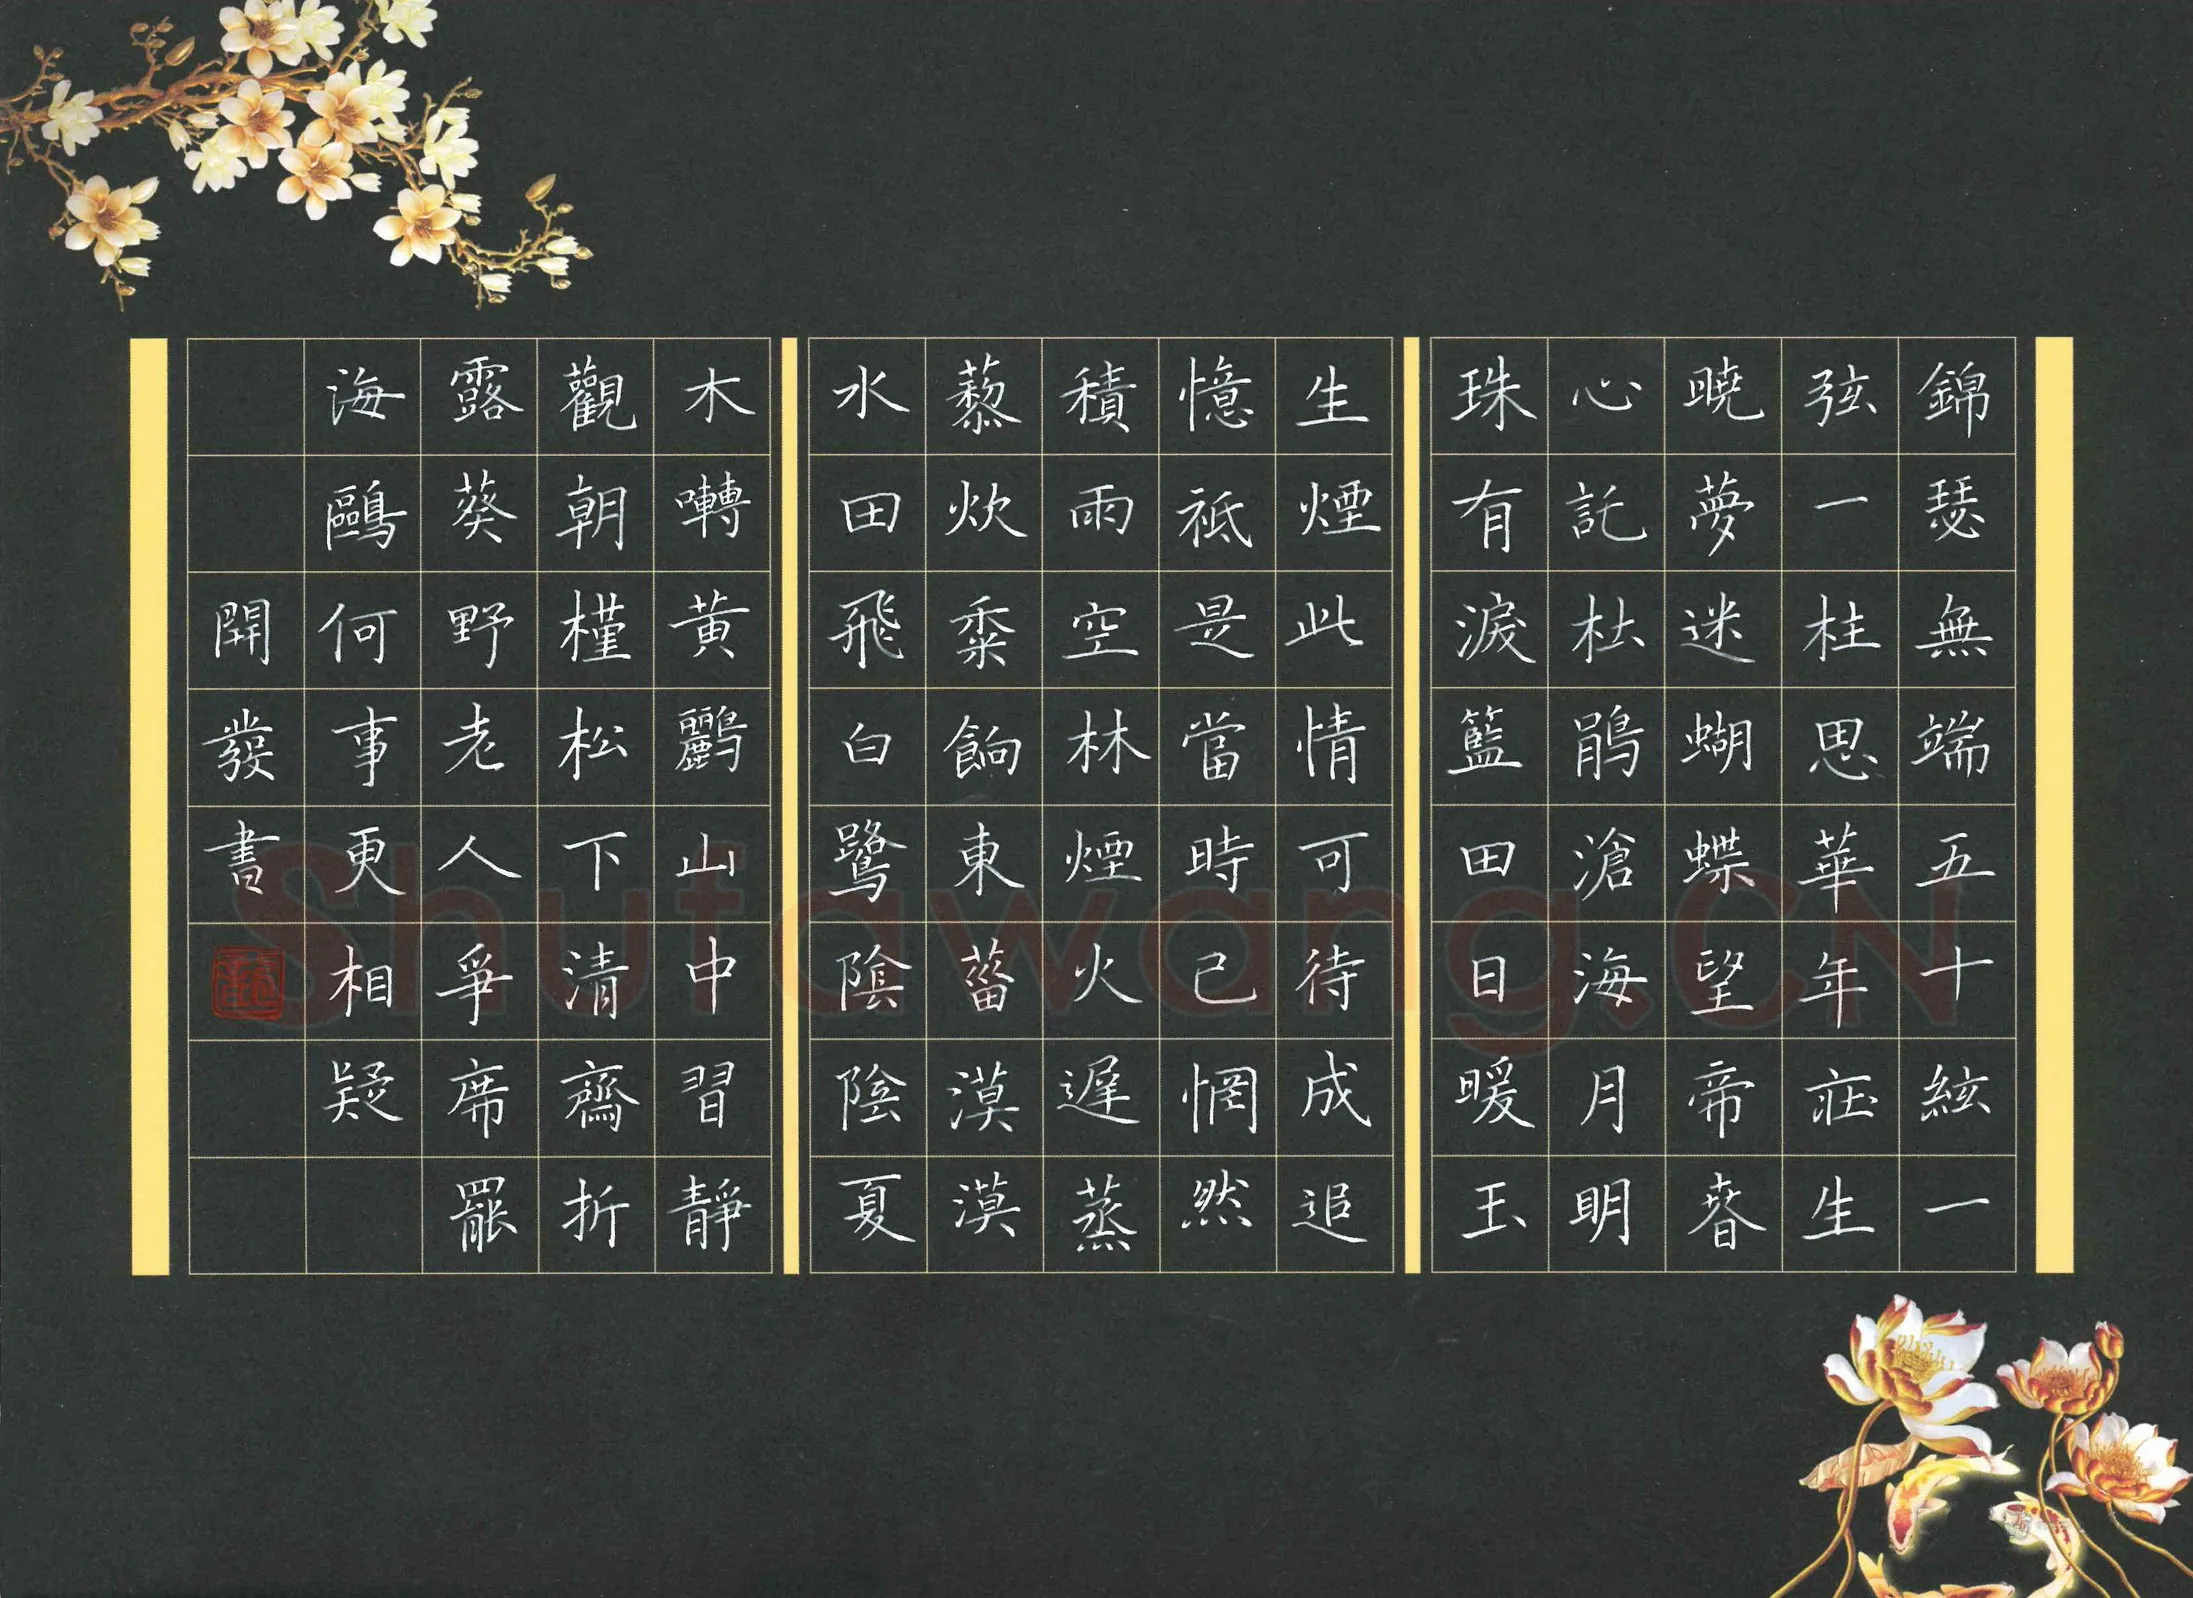 錦瑟無端五十絃一
弦一柱思華年莊生
曉夢迷蝴蝶望帝春
心託杜鵑滄海月明
珠有淚籃田日暖玉
生煙此情可待成追
憶祗是當時已惘然
積雨空林煙火遲蒸
藜炊黍餉東菑漠漠
水田飛白鷺陰陰夏
木囀黃鸝山中習靜
觀朝槿松下清齋折
露葵野老人爭席罷
海鷗何事更相疑
開發書
Shufawang.CN